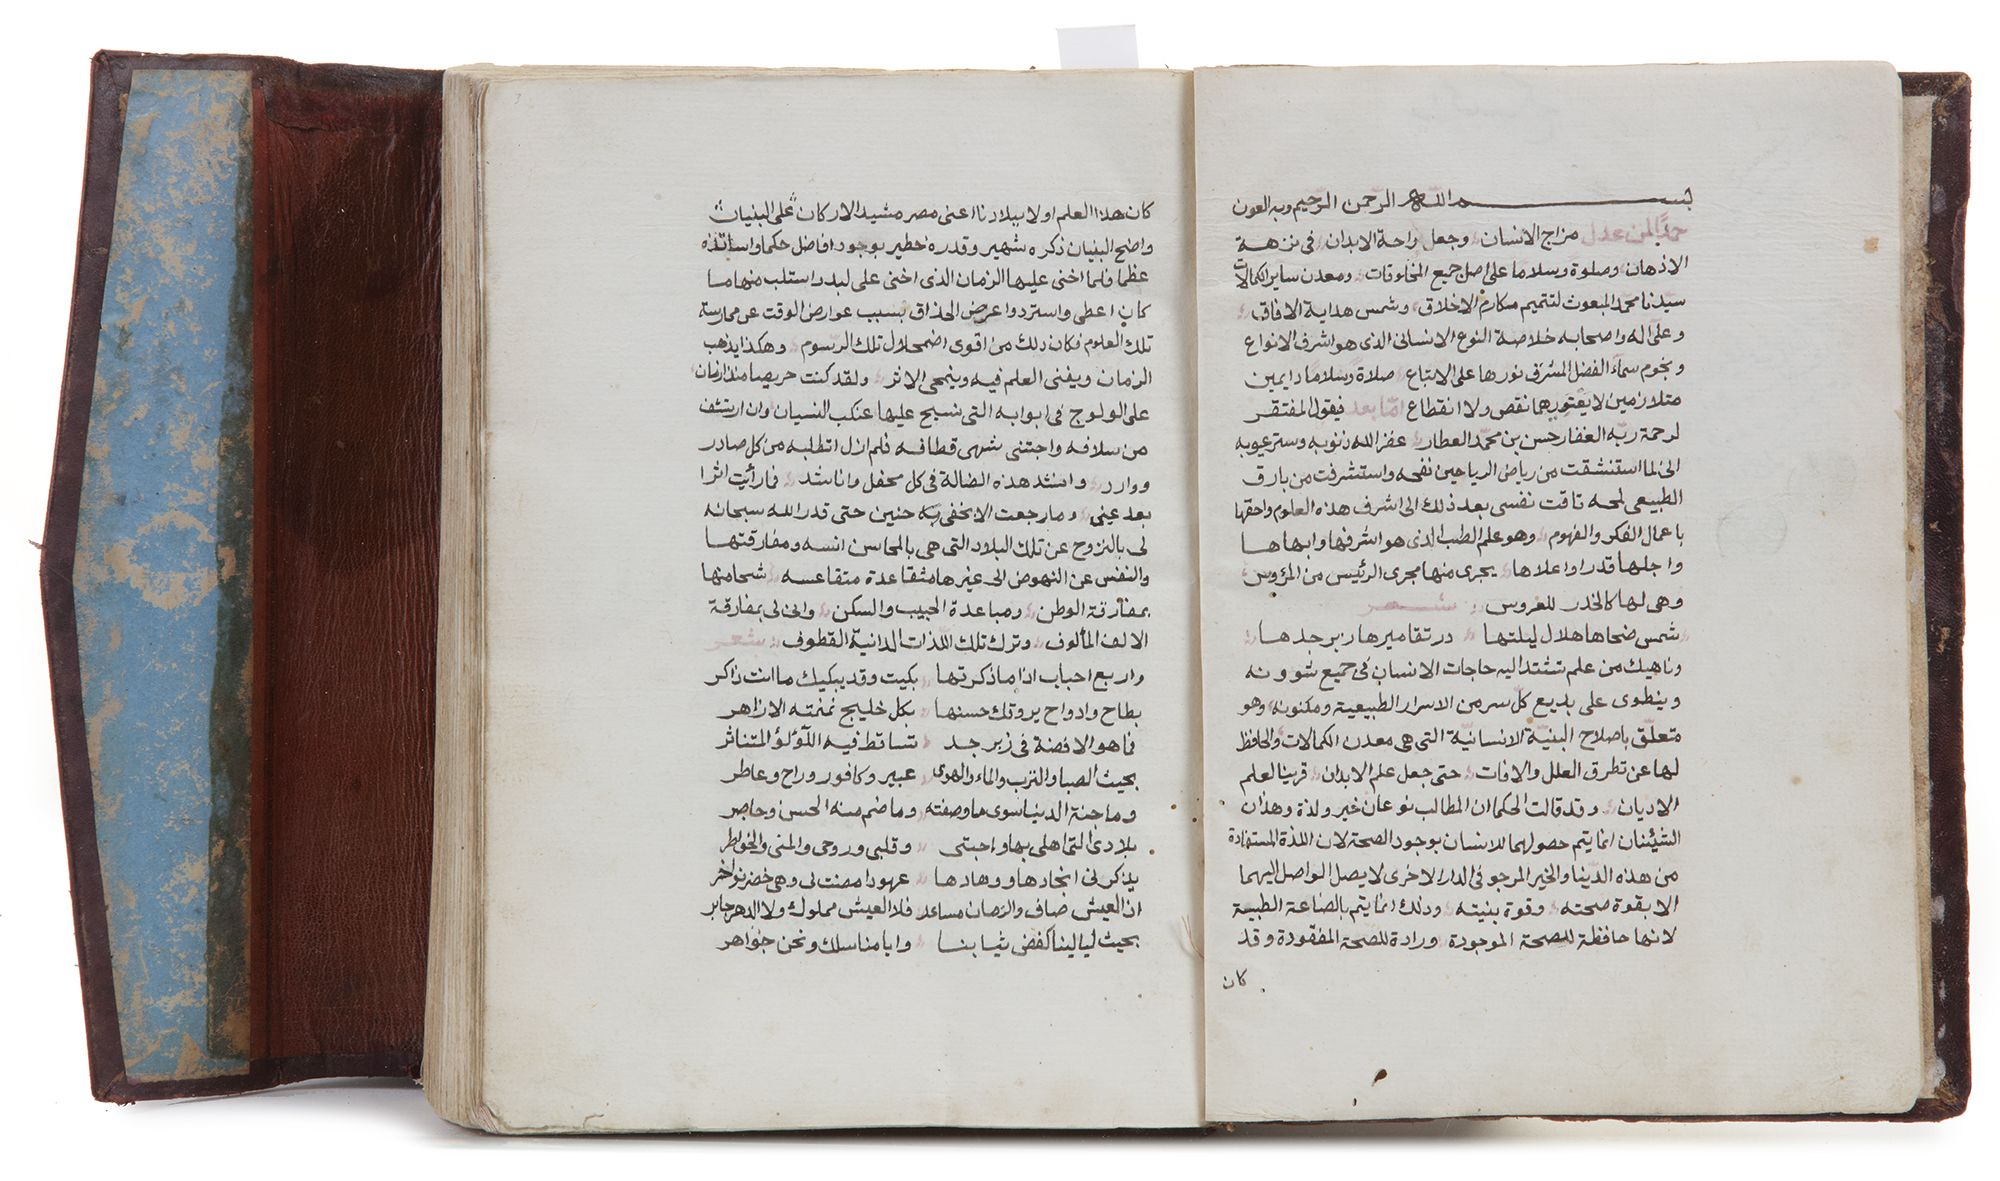 بسم الله الرحمن الرحيم وبه العون
حمدًا لمن عدل مزاج الانسان وجعل راحة الابدان في نزهة
الاذهان وصلوة وسلاما على اصل جميع المخلوقات ومعدن ساير الكمالات
سيدنا محمد المبعوث لتتميم مكارم الاخلاق وشمس هداية الافاق
وعلى اله واصحابه خلاصة النوع الانسانى الذى هو اشرف الانواع
ونجوم سماء الفضل المشرق نورها على الاتباع صلاة وسلاما دايمين
متلازمين لا يعتورهما نقص ولا انقطاع امّا بعد فيقول المفتقر
لرحمة ربّه الغفار حسن بن محمّد العطار غفر الله ذنوبه وستر عيوبه
انى لما استنشقت من رياض الرياحين نفحه واستشرفت من بارق
الطبيعى لمحه تاقت نفسى بعد ذلك الى اشرف هذه العلوم واحقها
باعمال الفكر والفهوم وهو علم الطب الذى هو اشرفها وابهاها
واجلها قدرا واعلاها يجرى منها مجرى الرئيس من المرؤوس
وهى لها كالخدر للعروس شعر
شمس ضحاها هلال ليلتها در تقاميرها زبرجدها
وناهيك من علم تشتد اليه حاجات الانسان فى جميع شوونه
وينطوى على بديع كلّ سر من الاسرار الطبيعية ومكنونه وهو
متعلّق باصلاح البنيّة الانسانيّة التى هى معدن الكمالات والحافظ
لها عن تطرق العلل والافات حتى جعل علم الابدان قرينا لعلم
الاديان وقد قالت الحكما ان المطالب نوعان خير ولذة وهذان
الشيئان انما يتم حصولهما للانسان بوجود الصحة لان اللذة المستفادة
من هذه الدنيا والخير المرجو فى الدار الاخرى لا يصل الواصل اليهما
الا بقوة صحته وقوة بنيته وذلك انما يتم بالصناعة الطبية
لانها حافظة للصحة الموجودة ورادة للصحة المفقودة وقد
كان
3
كان هذا العلم اولا ببلادنا اعنى مصر مشيد الاركان على البنيان
واضح البنيان ذكره شهير وقدره خطير بوجود افاضل حكما واساتذه
عظما فلما اخنى عليها الزمان الذى اخنى على لبد استلب منها ما
كان اعطى واسترد واعرض الحذاق بسبب عوارض الوقت عن ممارسة
تلك العلوم فكان ذلك من اقوى اضمحلال تلك الرسوم وهكذا يذهب
الزمان ويفنى العلم فيه وينمحى الاثر ولقد كنت حريصا منذ ازمان
على الولوج فى ابوابه التى نسج عليها عنكب النسيان وان ارتشف
من سلافه واجتنى شهى قطافه فلم ازل اتطلبه من كل صادر
ووارد وانشد هذه الضالة فى كل محفل واناشد فما رأيت اثرا
بعد عين وما رجعت الا بخفى حنين حتى قدر الله سبحانه
لى بالنزوح عن تلك البلاد التى هى بالمحاسن انسه ومفارقتها
والنفس عن النهوض الى غيرها متقاعدة متقاعسه شحا منها
بمفارقة الوطن ومباعدة الحبيب والسكن وانى لى بمفارقة
الالف المألوف وترك تلك اللذات الدانية القطوف شعر
واربع احباب اذا ما ذكرتها بكيت وقد يبكيك ما انت ذاكر
بطاح وادواح يروقك حسنها بكل خليج نمنمته الازاهر
فما هو الا فضة فى زبرجد تساقط فيه اللؤلؤ المتناثر
بحيث الصبا والترب والماء والهوى عبير وكافور وراح وعاطر
وما جنة الدنيا سوى ما وصفته وما ضم منه الحسن وحاصر
بلادى التى اهلى بها واحبتى وقلبى وروحى والمنى والخواطر
يذكرنى انجادها ووهادها عهودا مضت لى وهى خضر نواضر
اذ العيش صاف والزمان مساعد فلا العيش مملول ولا الدهر جاير
بحيث ليالينا كغض شبابنا وايامنا سلك ونحن جواهر